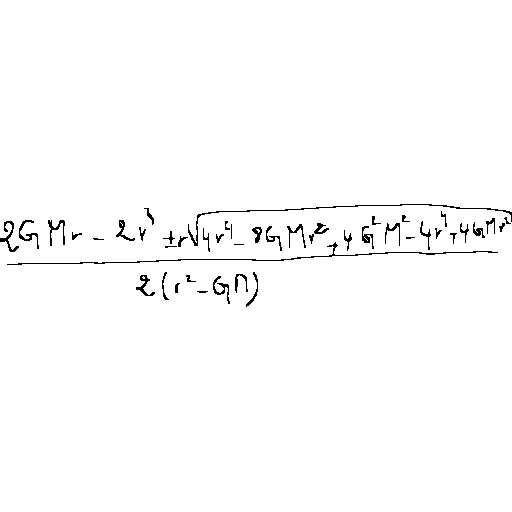 \frac{2GMr - 2r^3 \pm r\sqrt{4r^4 - 8GMr^2 + 4G^2M^2 - 4r^4 + 4GMr^2}}{2(r^2 - GM)}